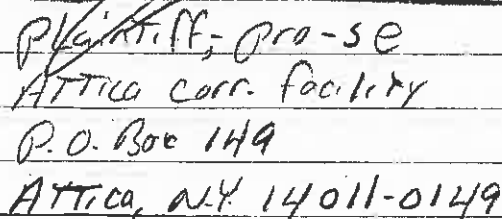 Plaintiff, pro-se
ATTica corr. facility
P.O. Box 149
ATTica, N.Y. 14011-0149